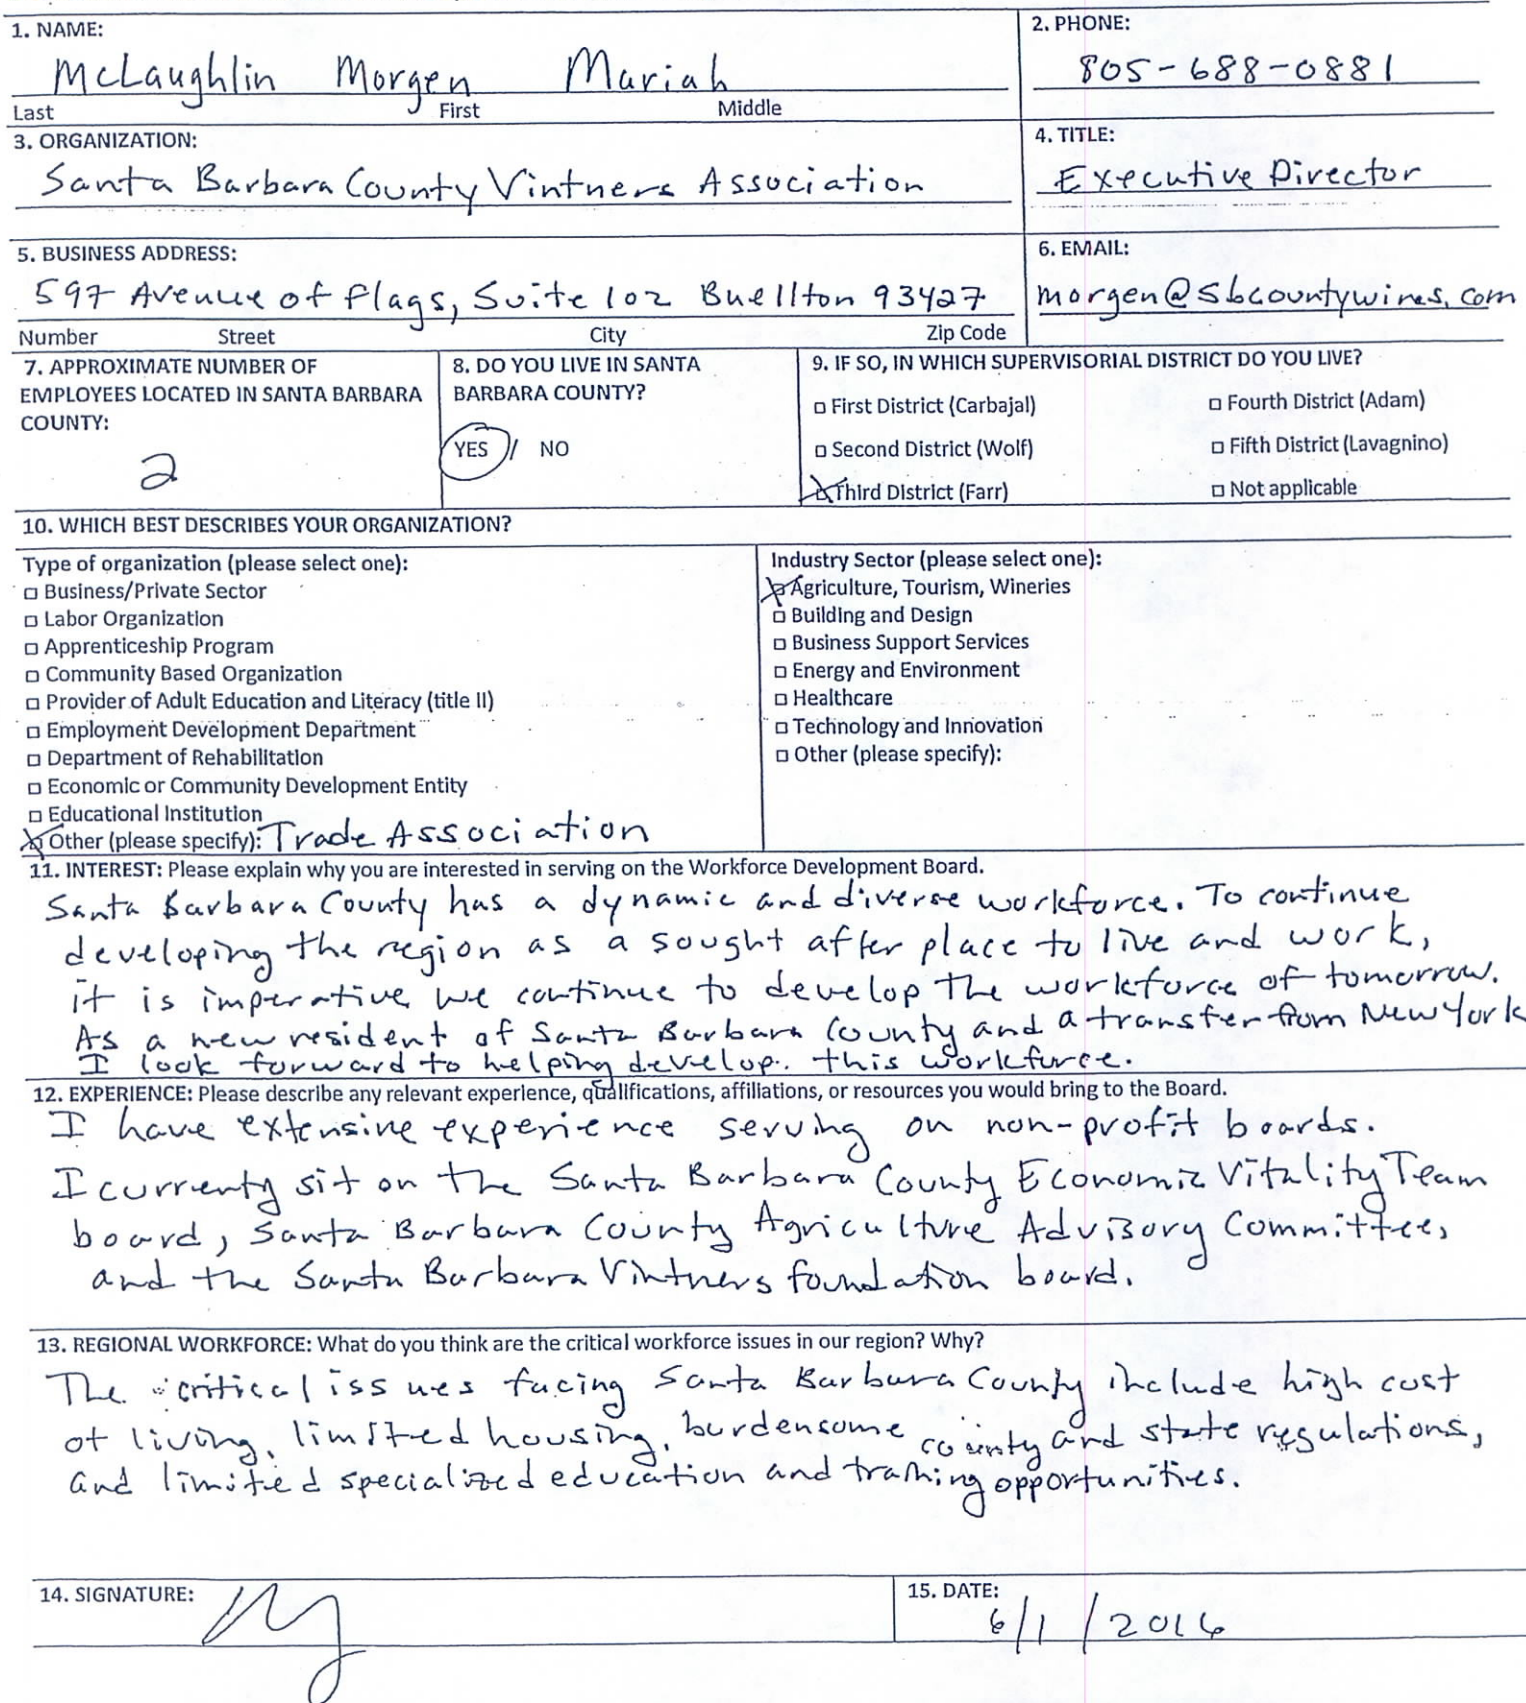 1. NAME:
2. PHONE:
McLaughlin Morgen Mariah
805-688-0881
Last First Middle
3. ORGANIZATION:
4. TITLE:
Santa Barbara County Vintners Association
Executive Director
5. BUSINESS ADDRESS:
6. EMAIL:
597 Avenue of Flags, Suite 102 Buellton 93427
morgen@sbcountywines.com
Number Street City Zip Code
7. APPROXIMATE NUMBER OF
EMPLOYEES LOCATED IN SANTA BARBARA
COUNTY:
2
8. DO YOU LIVE IN SANTA
BARBARA COUNTY?
YES / NO
9. IF SO, IN WHICH SUPERVISORIAL DISTRICT DO YOU LIVE?
□ First District (Carbajal)
□ Fourth District (Adam)
□ Second District (Wolf)
□ Fifth District (Lavagnino)
☒ Third District (Farr)
□ Not applicable
10. WHICH BEST DESCRIBES YOUR ORGANIZATION?
Type of organization (please select one):
□ Business/Private Sector
□ Labor Organization
□ Apprenticeship Program
□ Community Based Organization
□ Provider of Adult Education and Literacy (title II)
□ Employment Development Department
□ Department of Rehabilitation
□ Economic or Community Development Entity
□ Educational Institution
☒ Other (please specify): Trade Association
Industry Sector (please select one):
☒ Agriculture, Tourism, Wineries
□ Building and Design
□ Business Support Services
□ Energy and Environment
□ Healthcare
□ Technology and Innovation
□ Other (please specify):
11. INTEREST: Please explain why you are interested in serving on the Workforce Development Board.
Santa Barbara County has a dynamic and diverse workforce. To continue
developing the region as a sought after place to live and work,
it is imperative we continue to develop the workforce of tomorrow.
As a new resident of Santa Barbara County and a transfer from New York
I look forward to helping develop this workforce.
12. EXPERIENCE: Please describe any relevant experience, qualifications, affiliations, or resources you would bring to the Board.
I have extensive experience serving on non-profit boards.
I currenty sit on the Santa Barbara County Economic Vitality Team
board, Santa Barbara County Agriculture Advisory Committee,
and the Santa Barbara Vintners foundation board.
13. REGIONAL WORKFORCE: What do you think are the critical workforce issues in our region? Why?
The critical issues facing Santa Barbara County include high cost
of living, limited housing, burdensome county and state regulations,
and limited specialized education and training opportunities.
14. SIGNATURE:
15. DATE:
6/1/2016